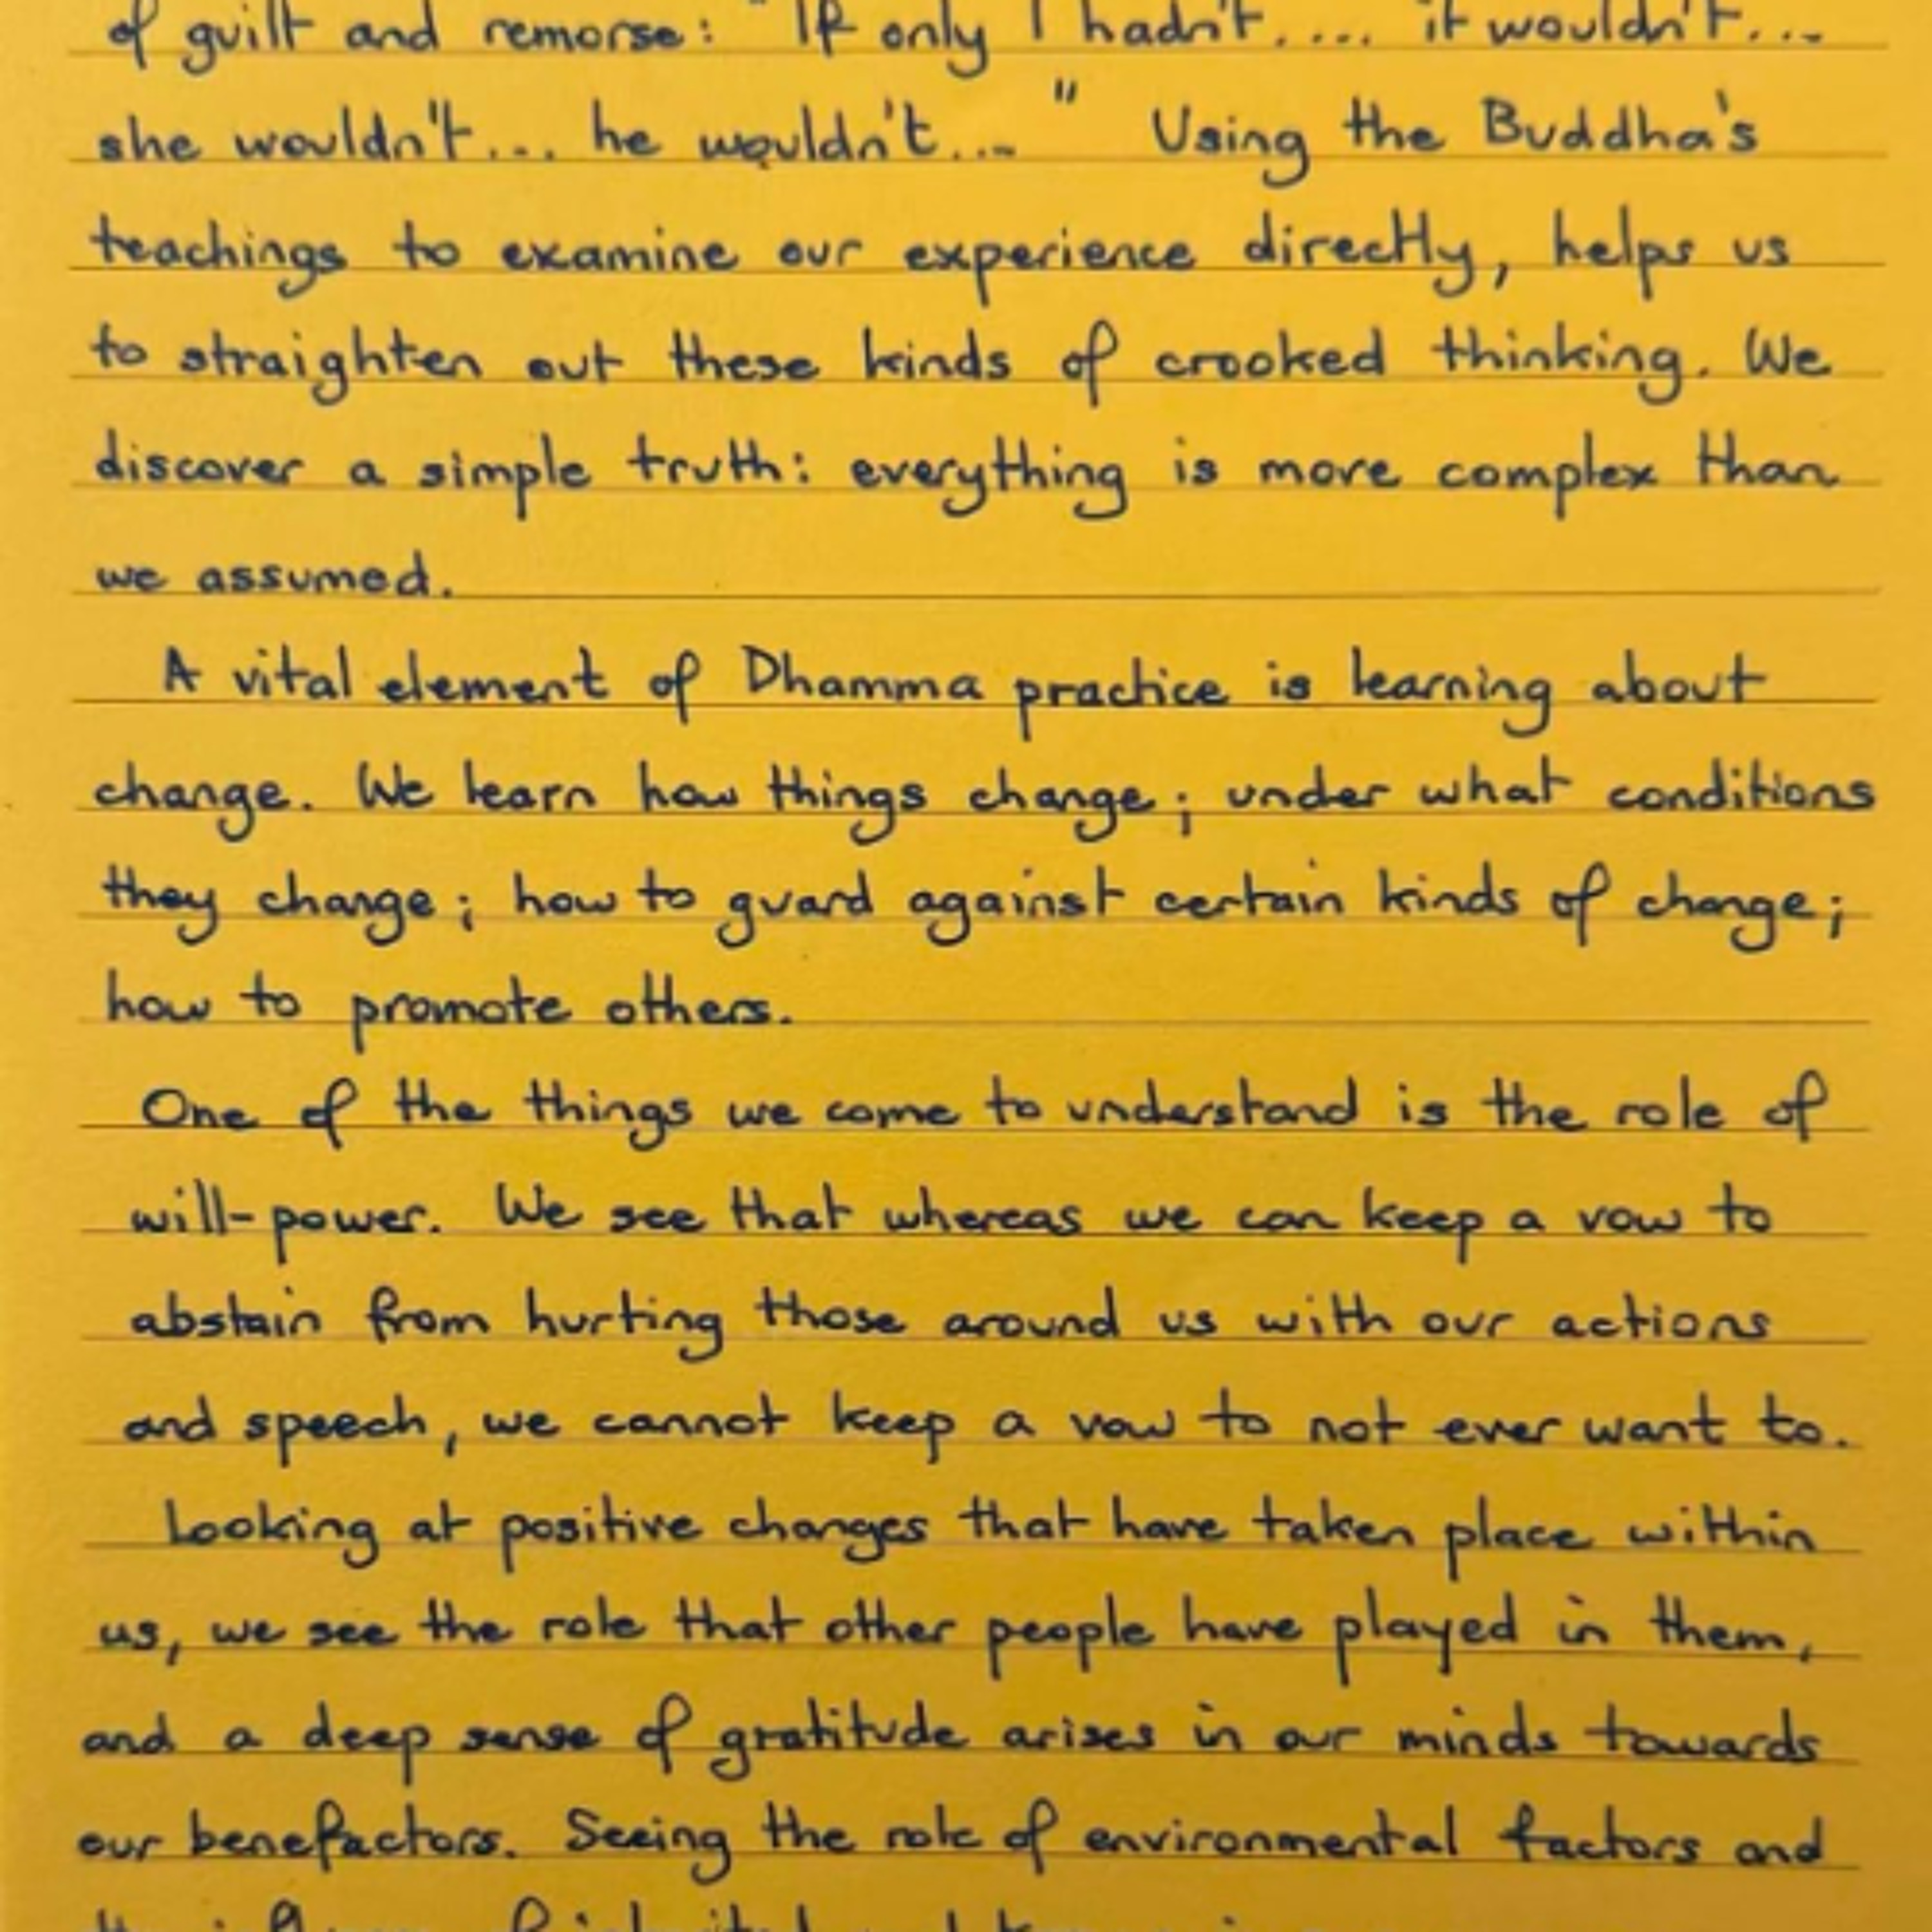 of guilt and remorse: "If only I hadn't.... it wouldn't...
she wouldn't... he wouldn't..." Using the Buddha's
teachings to examine our experience directly, helps us
to straighten out these kinds of crooked thinking. We
discover a simple truth: everything is more complex than
we assumed.
A vital element of Dhamma practice is learning about
change. We learn how things change; under what conditions
they change; how to guard against certain kinds of change;
how to promote others.
One of the things we come to understand is the role of
will-power. We see that whereas we can keep a vow to
abstain from hurting those around us with our actions
and speech, we cannot keep a vow to not ever want to.
Looking at positive changes that have taken place within
us, we see the role that other people have played in them,
and a deep sense of gratitude arises in our minds towards
our benefactors. Seeing the role of environmental factors and